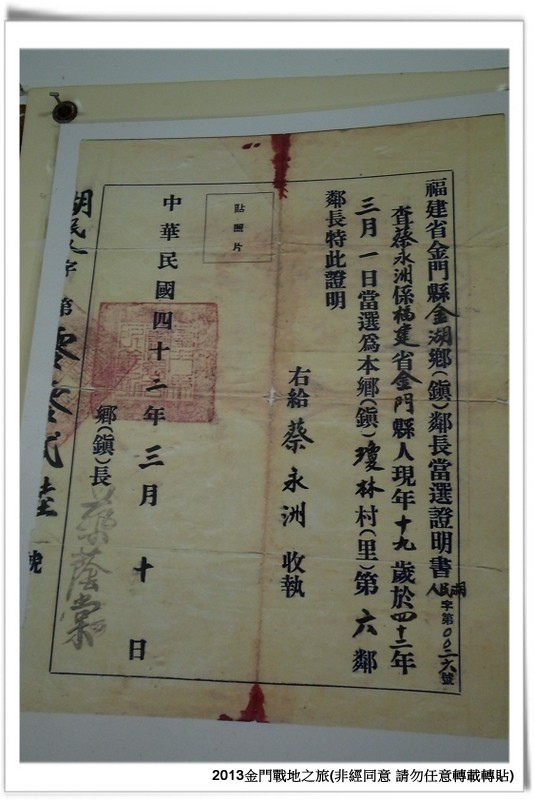 福建省金門縣金湖鄉(鎮)鄰長當選證明書
湖民人字第００三六號
查蔡永洲係福建省金門縣人現年十九歲於四十二年
三月一日當選為本鄉(鎮)瓊林村(里)第六鄰
鄰長特此證明
右給蔡永洲收執
貼照片
中華民國四十二年三月十日
鄉(鎮)長
蔡蔭棠
湖民人字第零零貳陸號
2013金門戰地之旅(非經同意 請勿任意轉載轉貼)